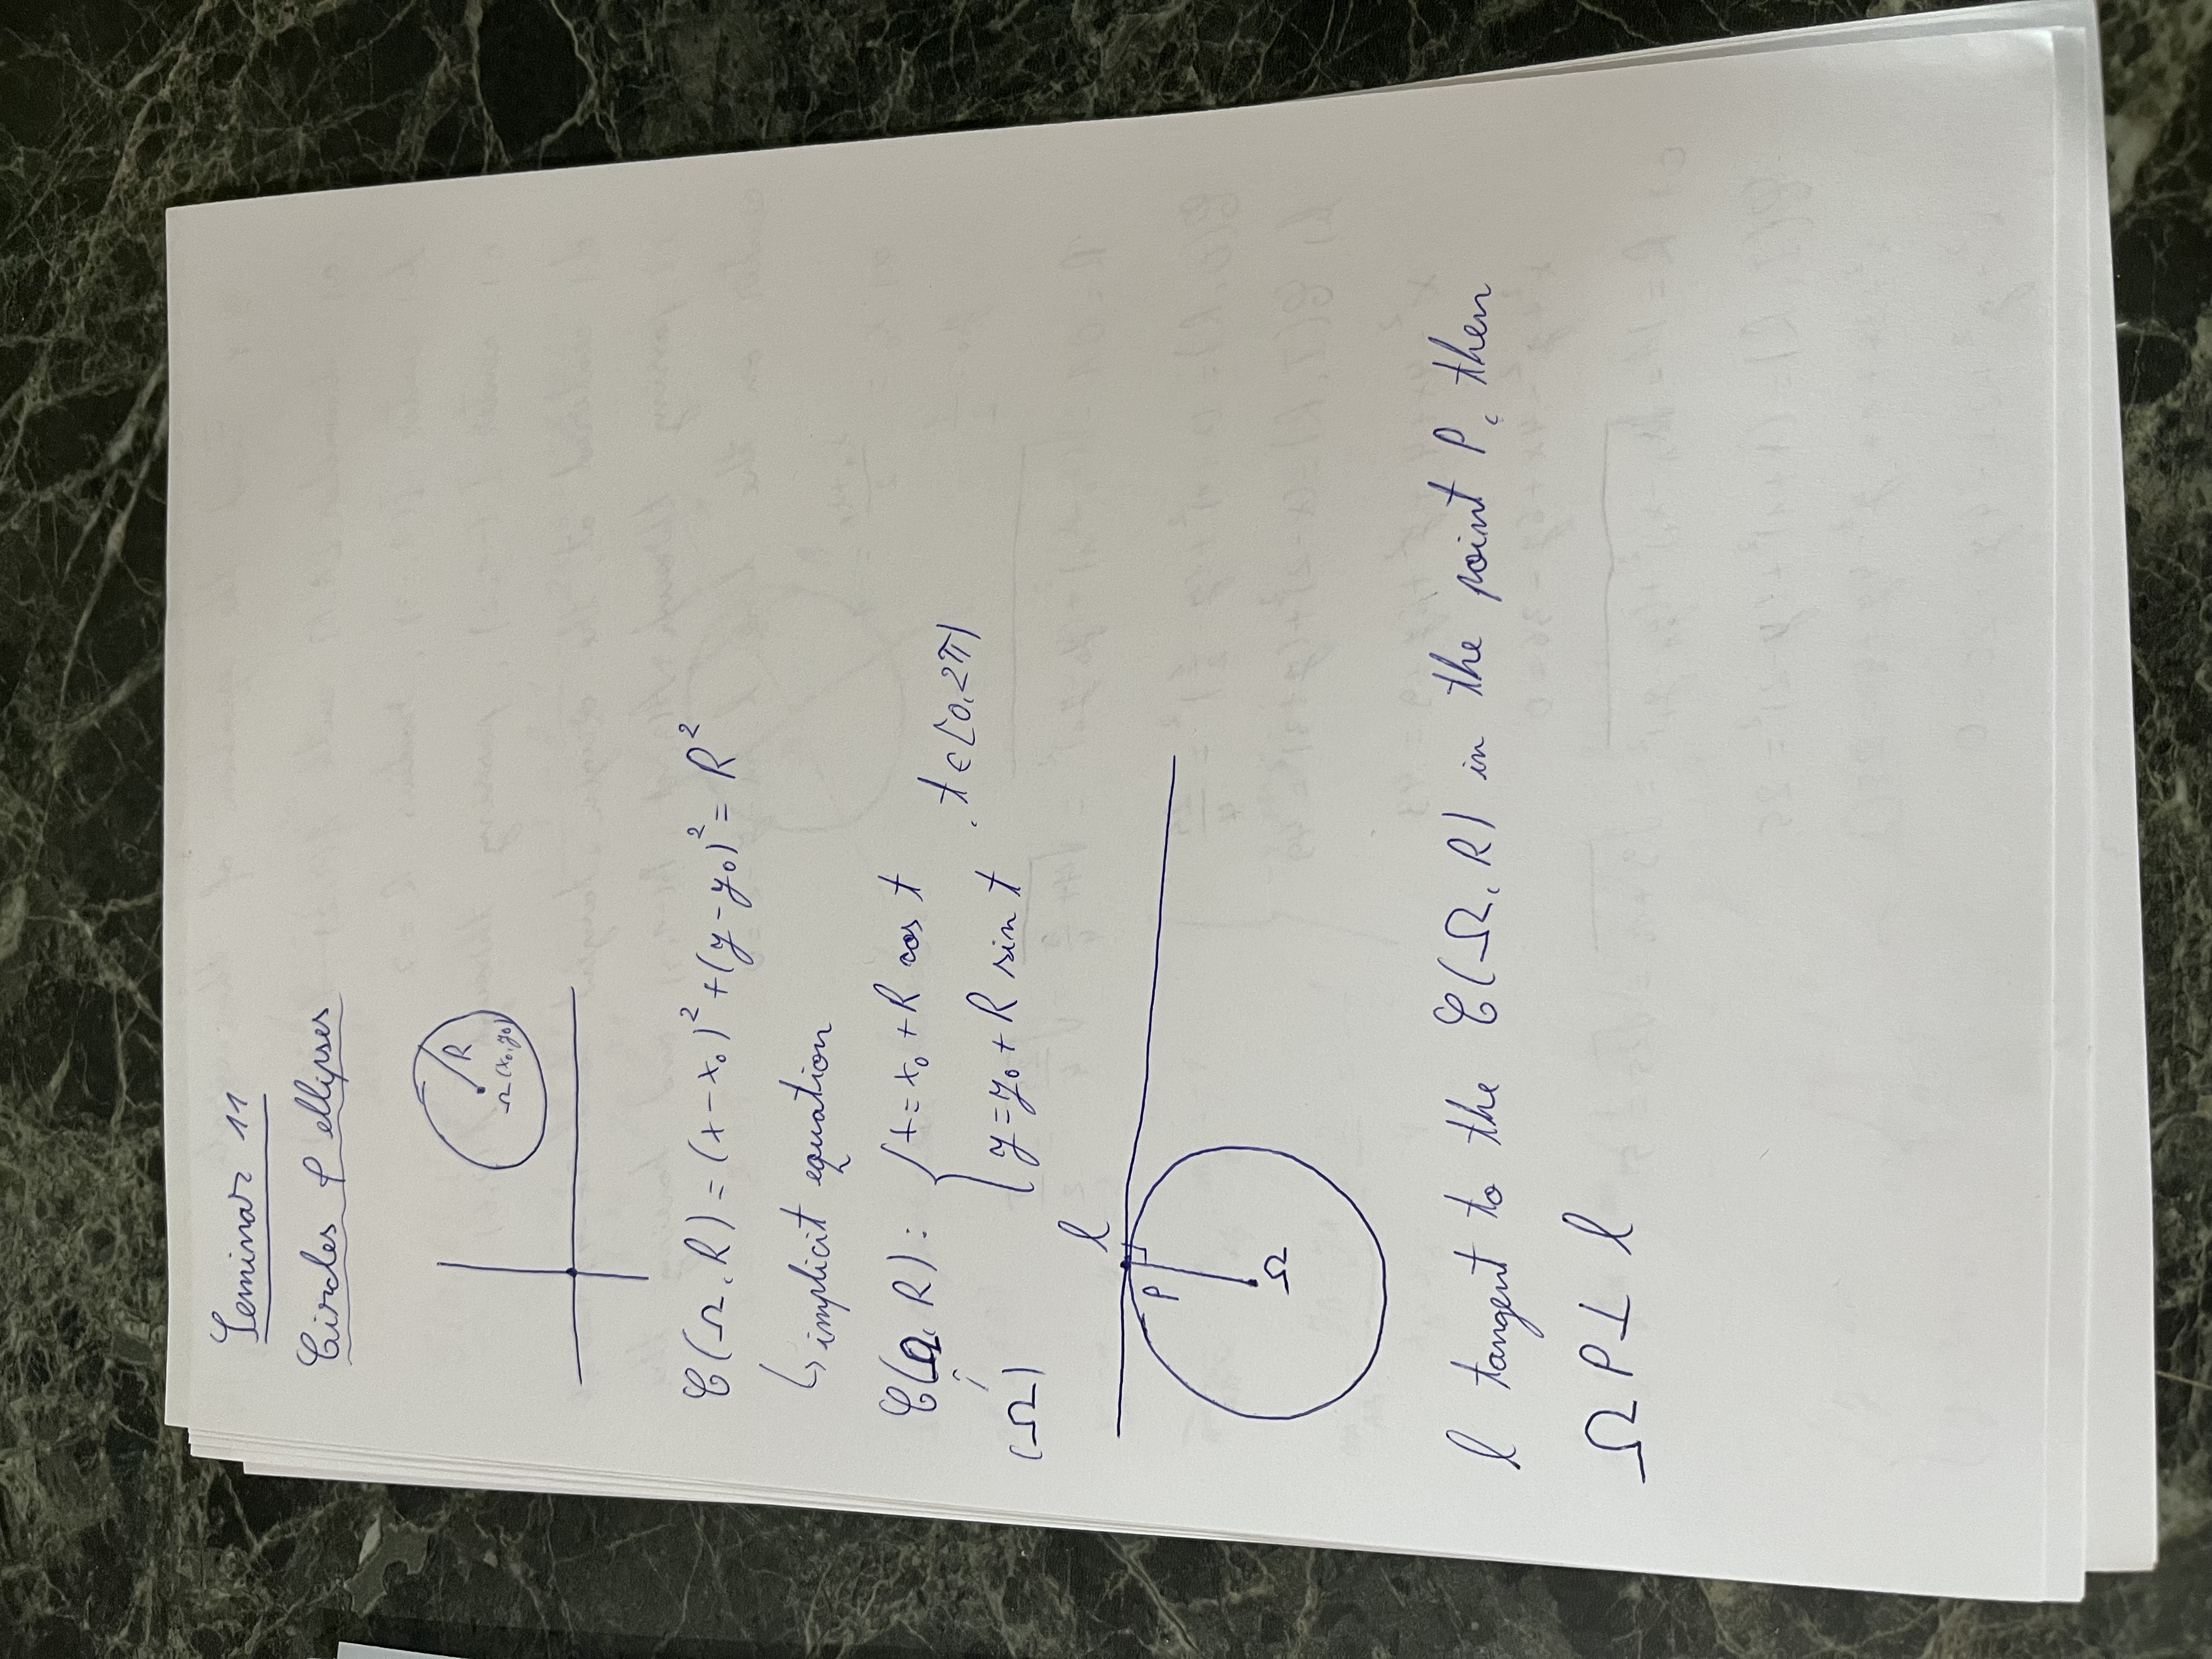 Seminar 11
Circles & ellipses
R
Ω (x₀, y₀)
C(Ω, R) = (x-x₀)² + (y-y₀)² = R²
↳ implicit equation
C(Ω, R) : { x = x₀ + R cos t
y = y₀ + R sin t , t ∈ [0, 2π)
(Ω)
l
P
Ω
l tangent to the C(Ω, R) in the point P, then
ΩP ⊥ l